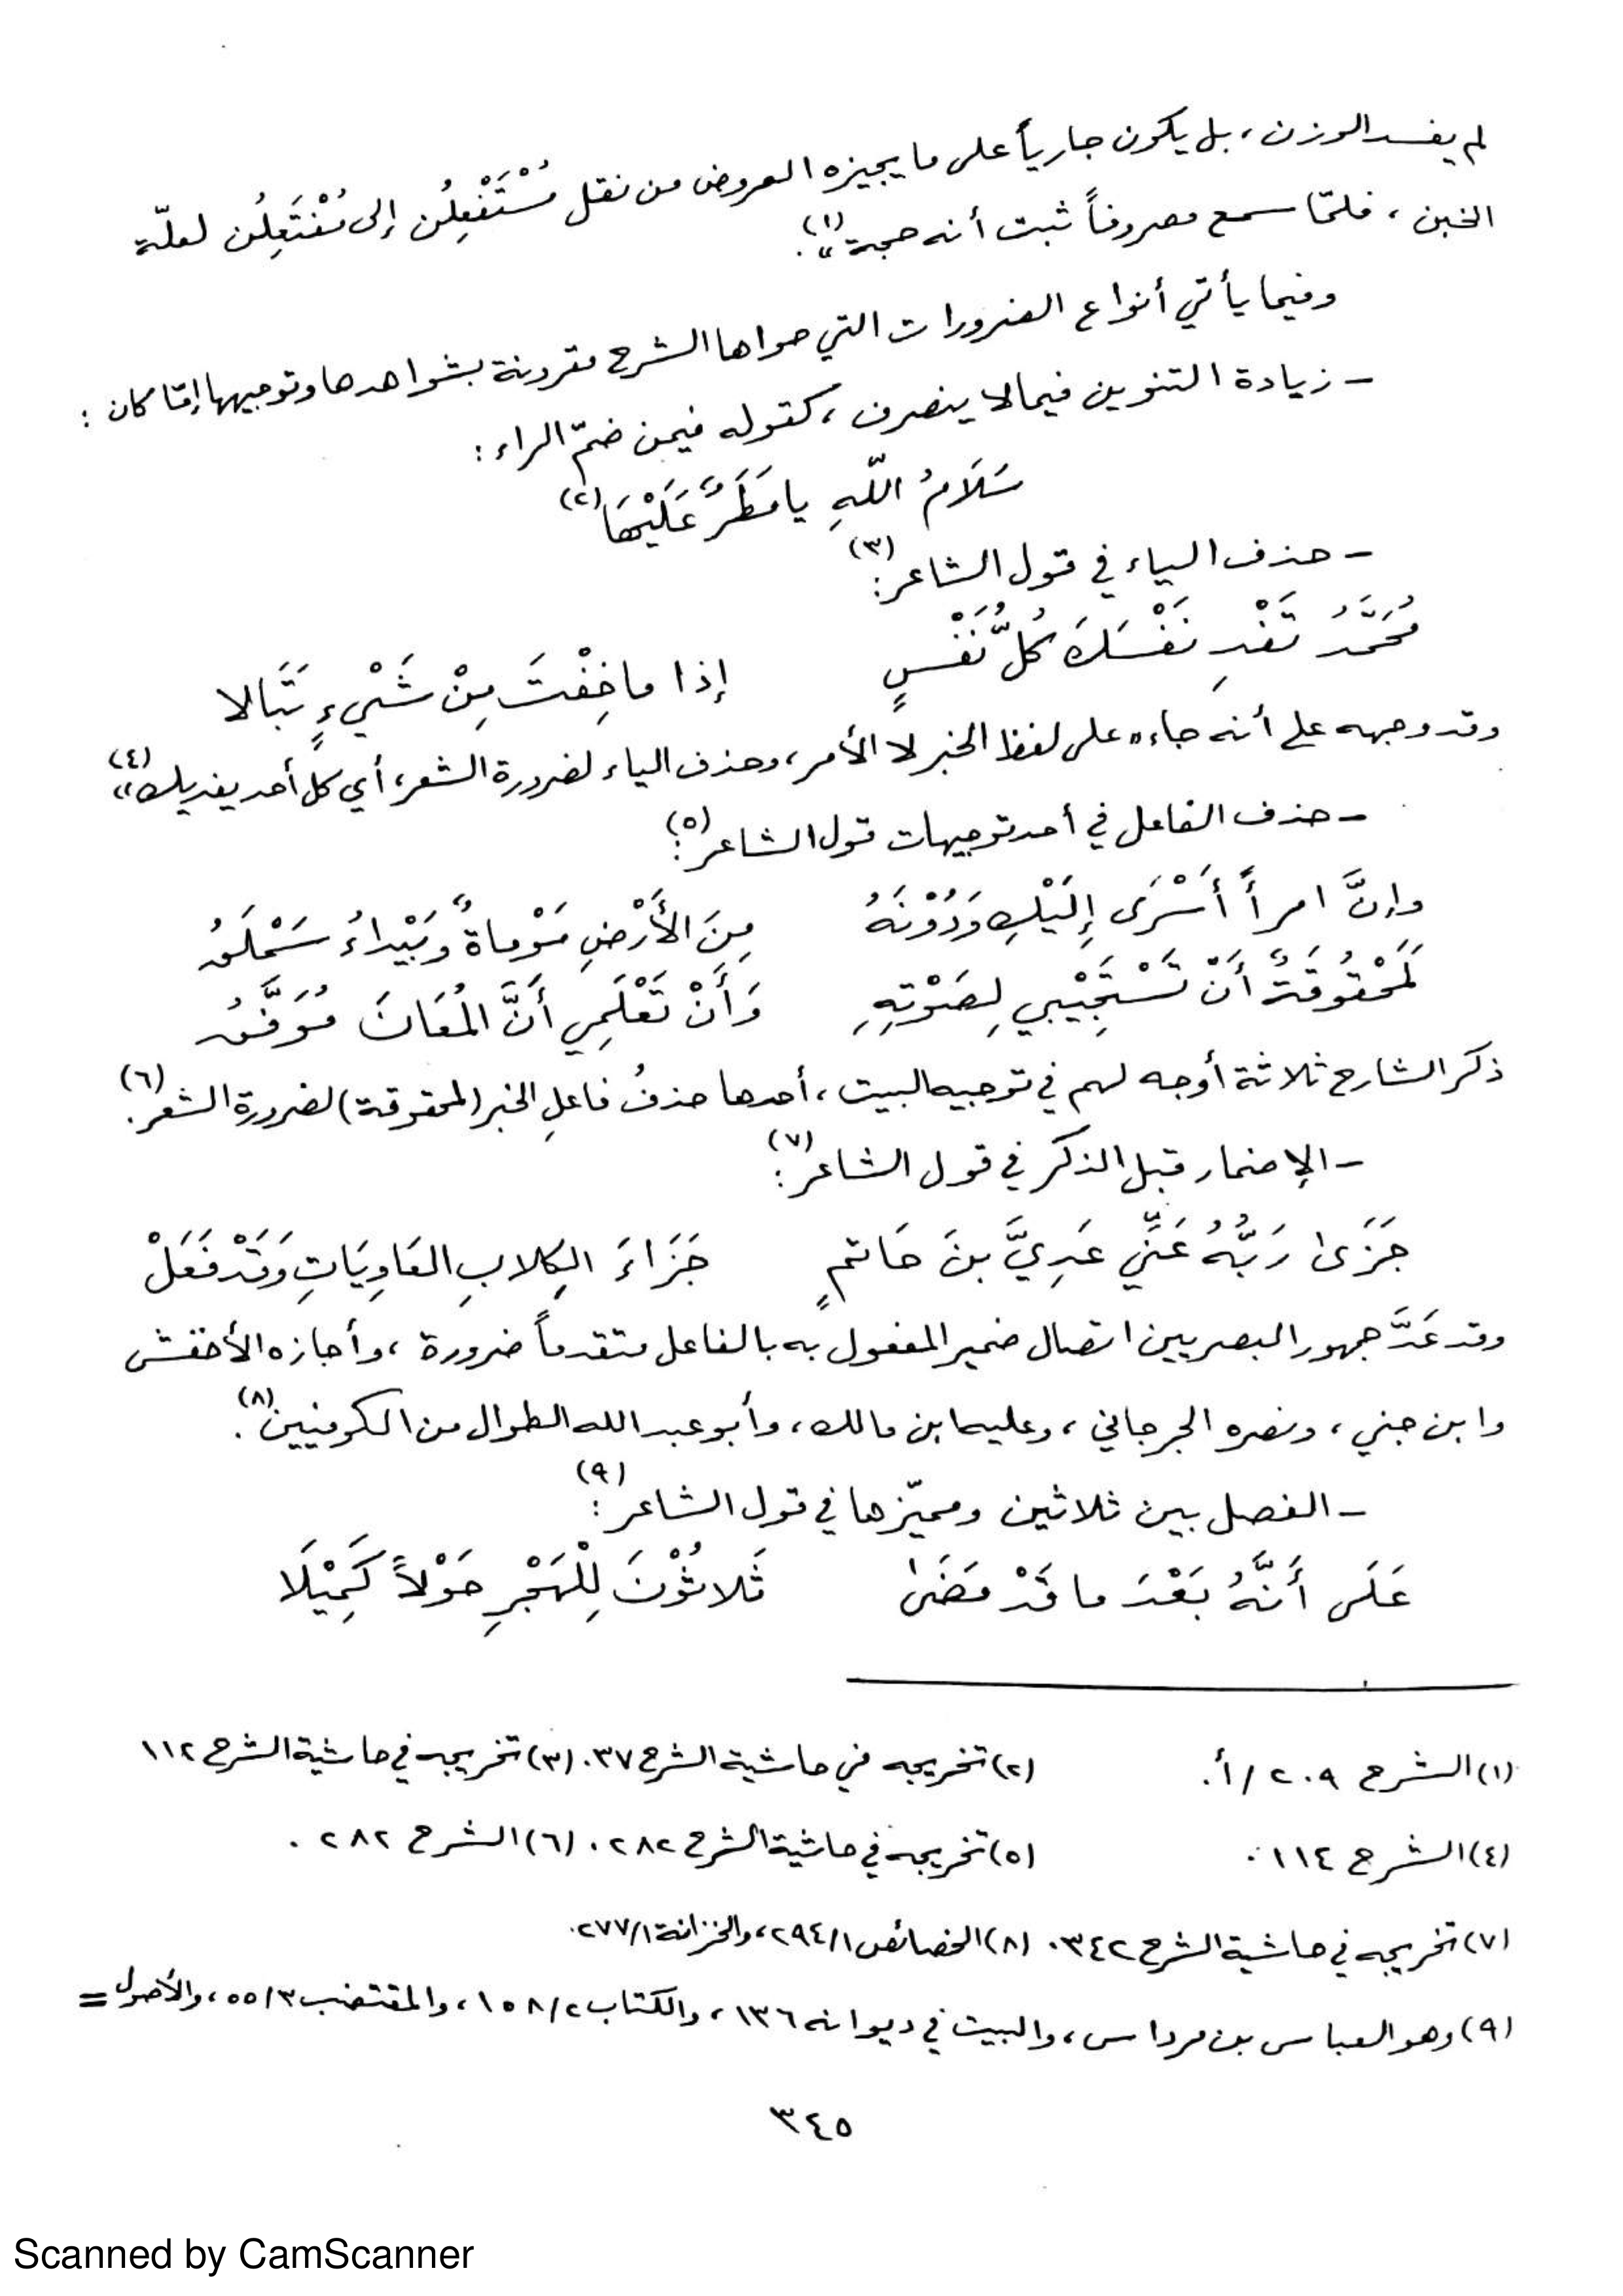 لم يفسد الوزن، بل يكون جارياً على ما يجيزه العروض من نقل مُسْتَفْعِلُن إلى مُفْتَعِلُن لعلّة
الخبن، فلمّا سمع مصروفاً ثبت أنه حجة»(١).
وفيما يأتي أنواع الضرورات التي حواها الشرح مقرونة بشواهدها وتوجيهها إمّا كان :
– زيادة التنوين فيما لا ينصرف، كقوله فيمن ضمّ الراء :
سَلَامُ اللّٰهِ يا مَطَرٌ عَلَيْهَا(٢)
– حذف الياء في قول الشاعر(٣):
مُحَمَّدُ تَفْدِ نَفْسَكَ كُلُّ نَفْسٍ إذا ما خِفْتَ مِنْ شَيْءٍ تَبَالا
وقد وجهه على أنه جاء «على لفظ الخبر لا الأمر، وحذف الياء لضرورة الشعر، أي كل أحد يفديك»(٤)
– حذف الفاعل في أحد توجيهات قول الشاعر(٥):
وإنَّ امرأً أَسْرَى إِلَيْكِ وَدُوْنَهُ مِنَ الأَرْضِ مَوْماةٌ وَبَيْداءُ سَمْلَقُ
لَمَحْقُوقَةٌ أَنْ تَسْتَجِيْبي لِصَوْتِهِ وَأَنْ تَعْلَمِي أَنَّ المُعَانَ مُوَفَّقُ
ذكر الشارح ثلاثة أوجه لهم في توجيه البيت، أحدها حذفُ فاعلِ الخبر (لمحقوقة) لضرورة الشعر(٦).
– الإضمار قبل الذكر في قول الشاعر(٧):
جَزَىٰ رَبُّهُ عَنِّي عَدِيَّ بنَ حَاتمٍ جَزَاءَ الكِلابِ العَاوِيَاتِ وَقَدْ فَعَلْ
وقد عَدَّ جمهور البصريين اتصال ضمير المفعول به بالفاعل متقدماً ضرورة، وأجازه الأخفش
وابن جني، ونصره الجرجاني، وعليه ابن مالك، وأبو عبد الله الطوال من الكوفيين(٨).
– الفصل بين ثلاثين ومميّزها في قول الشاعر(٩):
عَلَى أَنَّهُ بَعْدَ ما قَدْ مَضَىٰ ثَلاثُوْنَ لِلْهَجْرِ حَوْلاً كَمِيْلَا
(١) الشرح ٢٠٩/أ. (٢) تخريجه في حاشية الشرح ٣٧. (٣) تخريجه في حاشية الشرح ١١٢
(٤) الشرح ١١٤. (٥) تخريجه في حاشية الشرح ٢٨٢. (٦) الشرح ٢٨٢.
(٧) تخريجه في حاشية الشرح ٣٤٢. (٨) الخصائص ٢٩٤/١، والخزانة ٢٧٧/١.
(٩) وهو العباس بن مرداس، والبيت في ديوانه ١٣٦، والكتاب ١٥٨/٢، والمقتضب ٥٥/٣، والأصول =
٣٤٥
Scanned by CamScanner